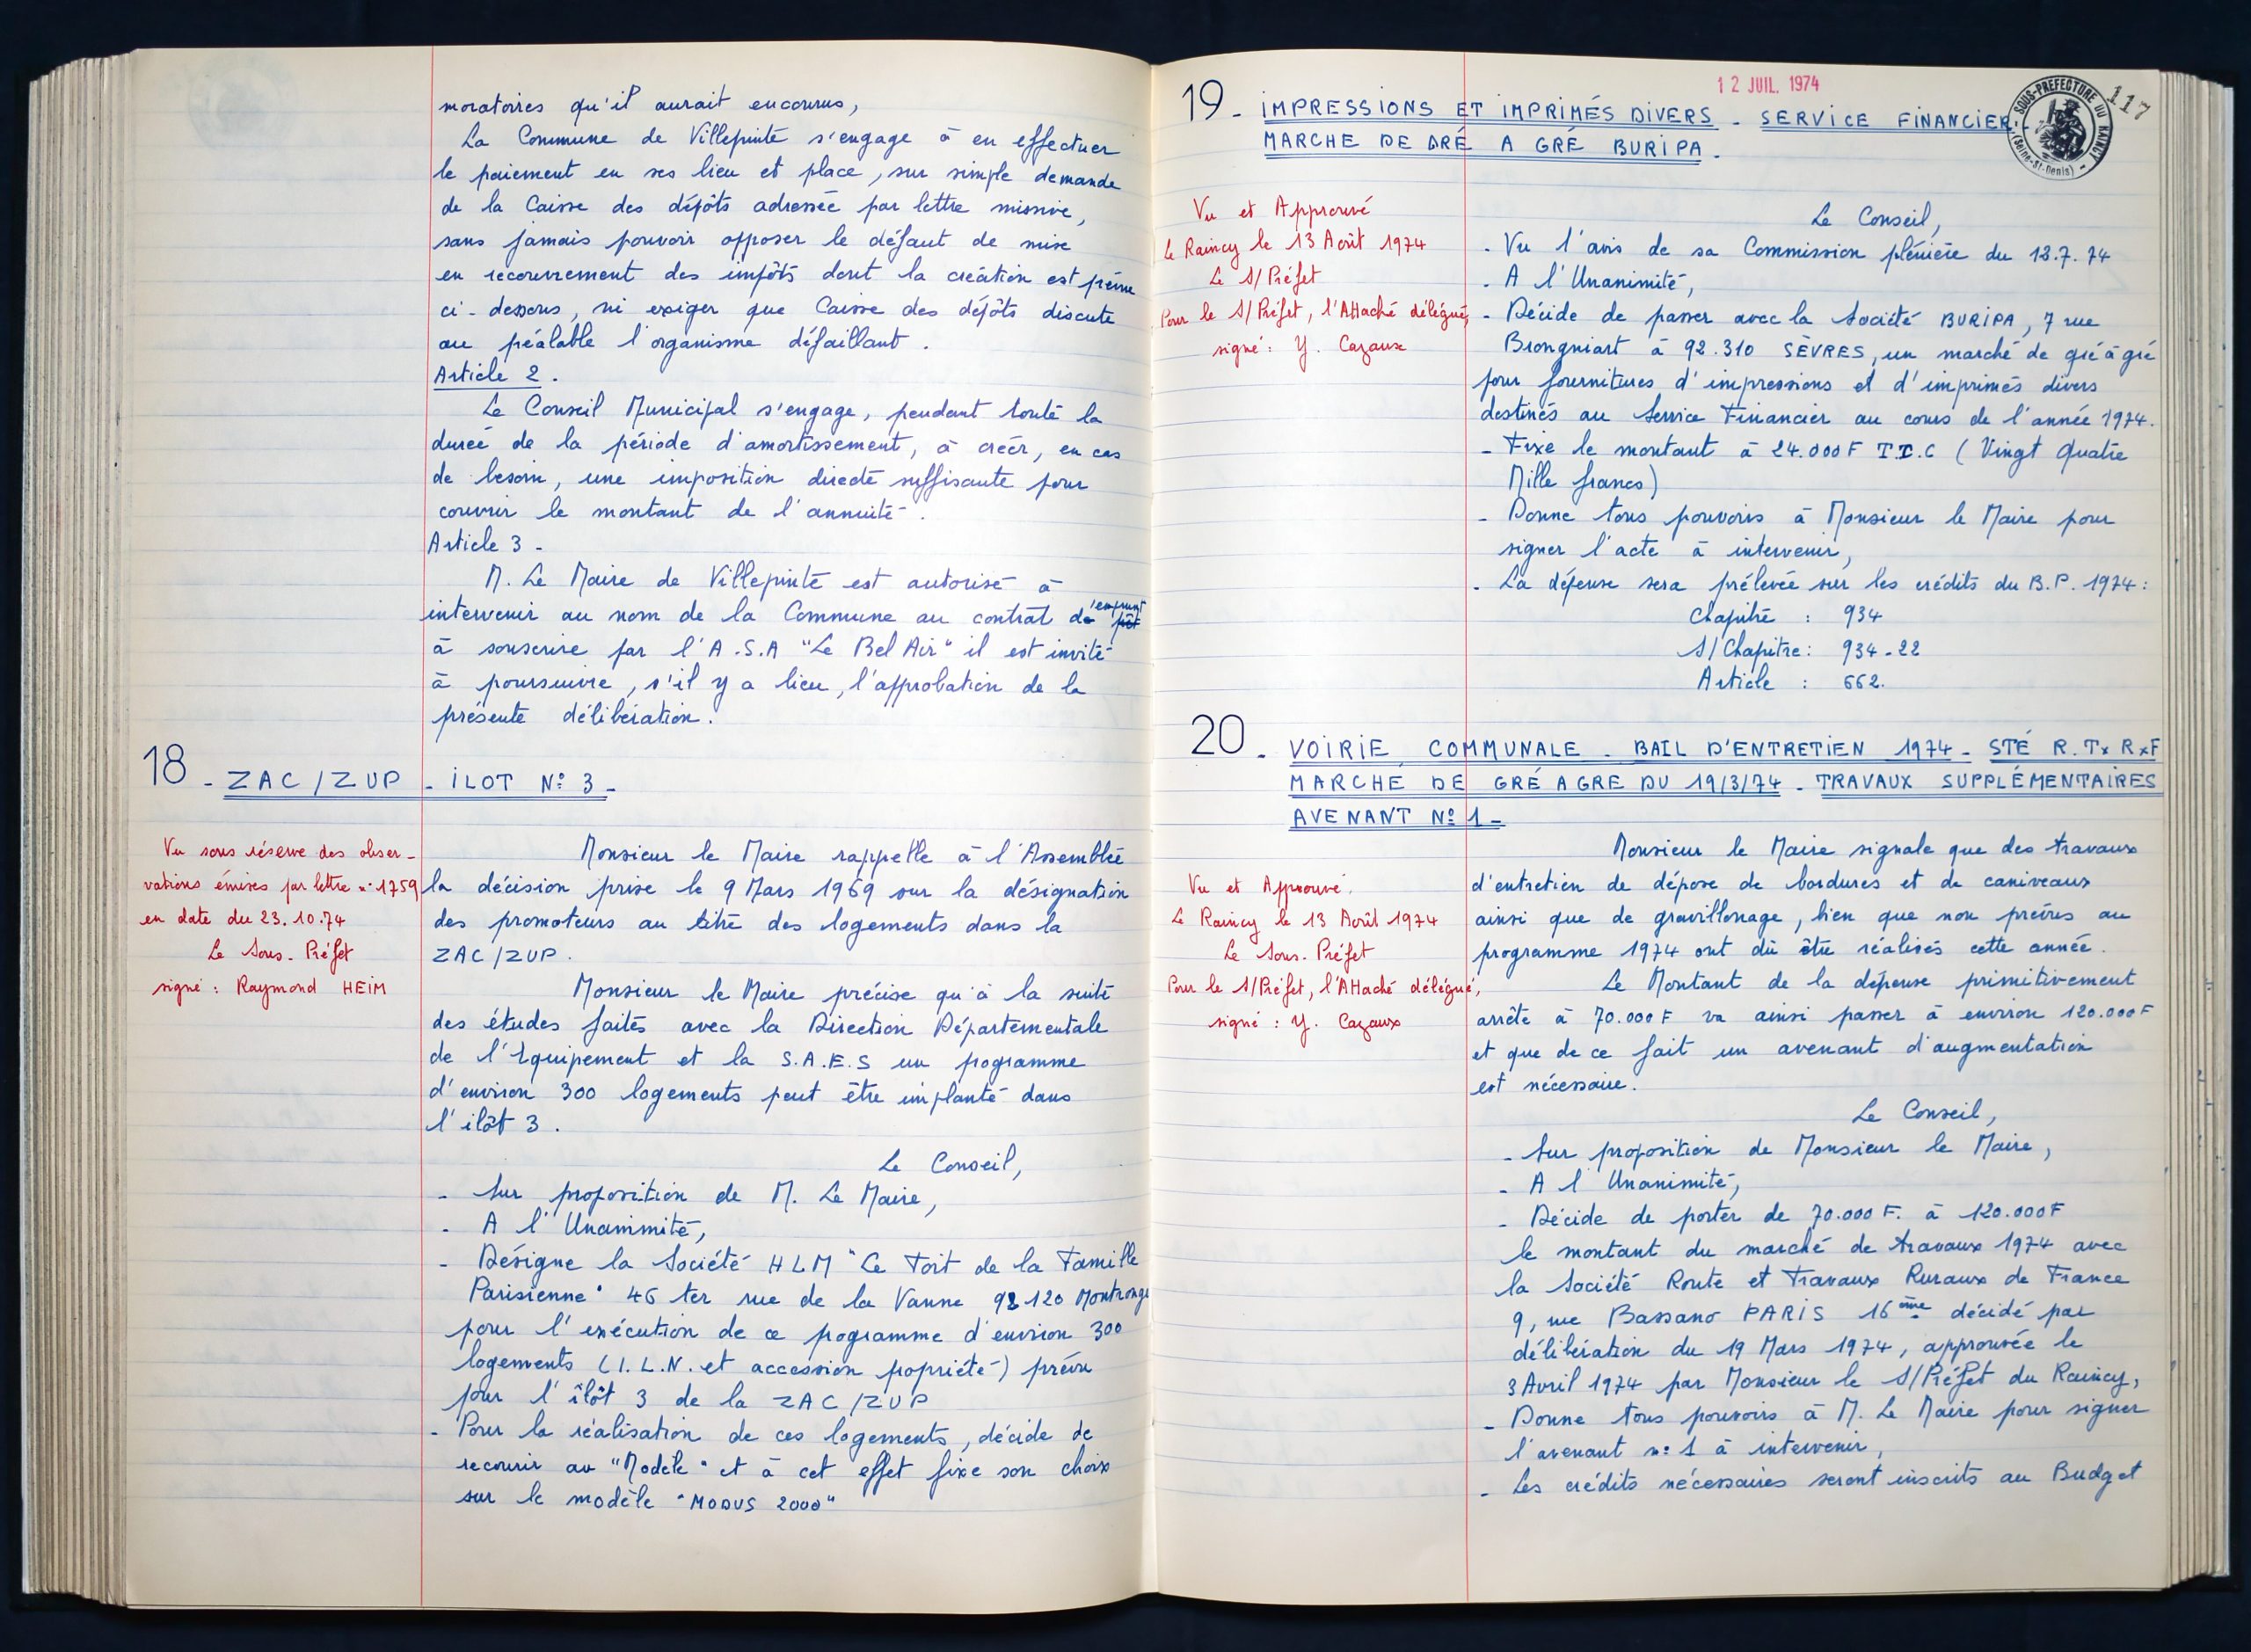 moratoires qu'il aurait encourus,
La Commune de Villepinte s'engage à en effectuer
le paiement en ses lieu et place, sur simple demande
de la Caisse des dépôts adressée par lettre missive,
sans jamais pouvoir opposer le défaut de mise
en recouvrement des impôts dont la création est prévue
ci-dessous, ni exiger que Caisse des dépôts discute
au préalable l'organisme défaillant.
Article 2.
Le Conseil Municipal s'engage, pendant toute la
durée de la période d'amortissement, à créer, en cas
de besoin, une imposition directe suffisante pour
couvrir le montant de l'annuité.
Article 3 -
M. Le Maire de Villepinte est autorisé à
intervenir au nom de la Commune au contrat d'emprunt
à souscrire par l'A.S.A "Le Bel Air" il est invité
à poursuivre, s'il y a lieu, l'approbation de la
présente délibération.
18 - ZAC/ZUP - ILOT N° 3 -
Vu sous réserve des obser-
vations émises par lettre n° 1759
en date du 23.10.74
Le Sous-Préfet
signé : Raymond HEIM
Monsieur le Maire rappelle à l'Assemblée
la décision prise le 9 Mars 1969 sur la désignation
des promoteurs au titre des logements dans la
ZAC/ZUP.
Monsieur le Maire précise qu'à la suite
des études faites avec la Direction Départementale
de l'Equipement et la S.A.E.S un programme
d'environ 300 logements peut être implanté dans
l'ilôt 3.
Le Conseil,
- Sur proposition de M. Le Maire,
- A l'Unanimité,
- Désigne la Société HLM "Le Toit de la Famille
Parisienne" 46 ter rue de la Vanne 92120 Montrouge
pour l'exécution de ce programme d'environ 300
logements (I.L.N. et accession propriété) prévu
pour l'îlôt 3 de la ZAC/ZUP
- Pour la réalisation de ces logements, décide de
recourir au "Modèle" et à cet effet fixe son choix
sur le modèle "MODUS 2000"
12 JUIL. 1974
SOUS-PREFECTURE DU RAINCY
(Seine-St-Denis)
117
19 - IMPRESSIONS ET IMPRIMÉS DIVERS - SERVICE FINANCIER
MARCHE DE GRÉ A GRÉ BURIPA.
Vu et Approuvé
Le Raincy le 13 Août 1974
Le S/Préfet
Pour le S/Préfet, l'Attaché délégué,
signé : Y. Cazaux
Le Conseil,
- Vu l'avis de sa Commission plénière du 12.7.74
- A l'Unanimité,
- Décide de passer avec la Société BURIPA, 7 rue
Brongniart à 92.310 SÈVRES, un marché de gré à gré
pour fournitures d'impressions et d'imprimés divers
destinés au Service Financier au cours de l'année 1974.
- Fixe le montant à 24.000 F T.T.C (Vingt Quatre
Mille francs)
- Donne tous pouvoirs à Monsieur le Maire pour
signer l'acte à intervenir,
- La dépense sera prélevée sur les crédits du B.P. 1974 :
Chapitre : 934
S/Chapitre : 934-22
Article : 662.
20 - VOIRIE COMMUNALE - BAIL D'ENTRETIEN 1974 - STÉ R.Tx RxF
MARCHÉ DE GRÉ A GRE DU 19/3/74 - TRAVAUX SUPPLÉMENTAIRES
AVENANT N° 1 -
Vu et Approuvé.
Le Raincy le 13 Août 1974
Le Sous-Préfet
Pour le S/Préfet, l'Attaché délégué,
signé : Y. Cazaux
Monsieur le Maire signale que des travaux
d'entretien de dépose de bordures et de caniveaux
ainsi que de gravillonage, bien que non prévus au
programme 1974 ont dû être réalisés cette année.
Le Montant de la dépense primitivement
arrêté à 70.000 F va ainsi passer à environ 120.000 F
et que de ce fait un avenant d'augmentation
est nécessaire.
Le Conseil,
- Sur proposition de Monsieur le Maire,
- A l'Unanimité,
- Décide de porter de 70.000 F. à 120.000 F
le montant du marché de travaux 1974 avec
la Société Route et Travaux Ruraux de France
9, rue Bassano PARIS 16ème décidé par
délibération du 19 Mars 1974, approuvée le
3 Avril 1974 par Monsieur le S/Préfet du Raincy,
- Donne tous pouvoirs à M. Le Maire pour signer
l'avenant n° 1 à intervenir,
- Les crédits nécessaires seront inscrits au Budget